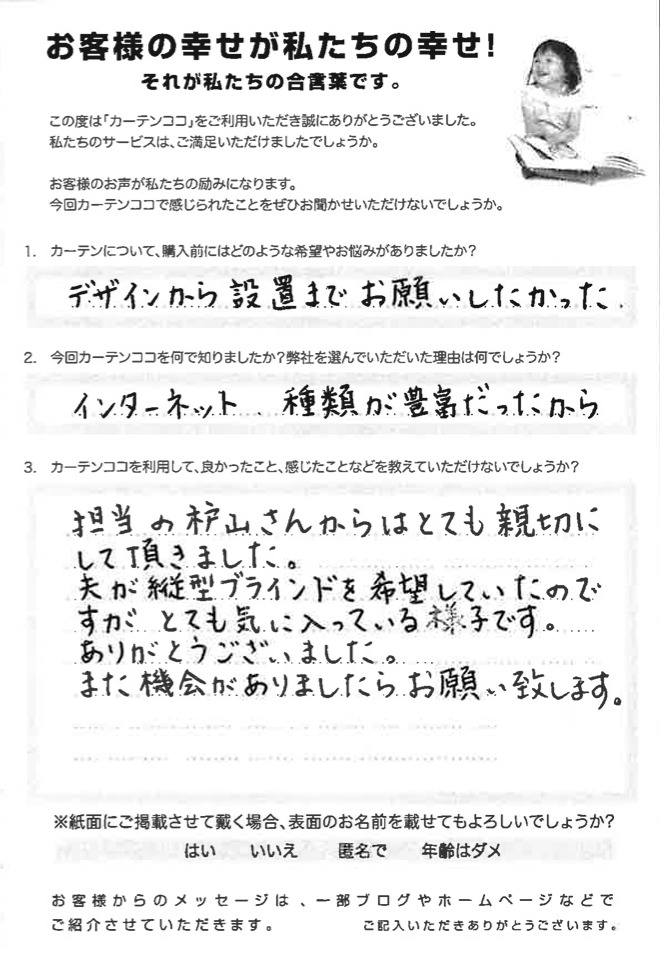 お客様の幸せが私たちの幸せ!
それが私たちの合言葉です。
この度は「カーテンココ」をご利用いただき誠にありがとうございました。
私たちのサービスは、ご満足いただけましたでしょうか。
お客様のお声が私たちの励みになります。
今回カーテンココで感じられたことをぜひお聞かせいただけないでしょうか。
1. カーテンについて、購入前にはどのような希望やお悩みがありましたか?
デザインから設置までお願いしたかった.
2. 今回カーテンココを何で知りましたか?弊社を選んでいただいた理由は何でしょうか?
インターネット 種類が豊富だったから
3. カーテンココを利用して、良かったこと、感じたことなどを教えていただけないでしょうか?
担当の枦山さんからはとても親切に
して頂きました。
夫が縦型ブラインドを希望していたので
すが とても気に入っている様子です。
ありがとうございました。
また機会がありましたらお願い致します。
※紙面にご掲載させて戴く場合、表面のお名前を載せてもよろしいでしょうか?
はい いいえ 匿名で 年齢はダメ
お客様からのメッセージは、一部ブログやホームページなどで
ご紹介させていただきます。 ご記入いただきありがとうございます。